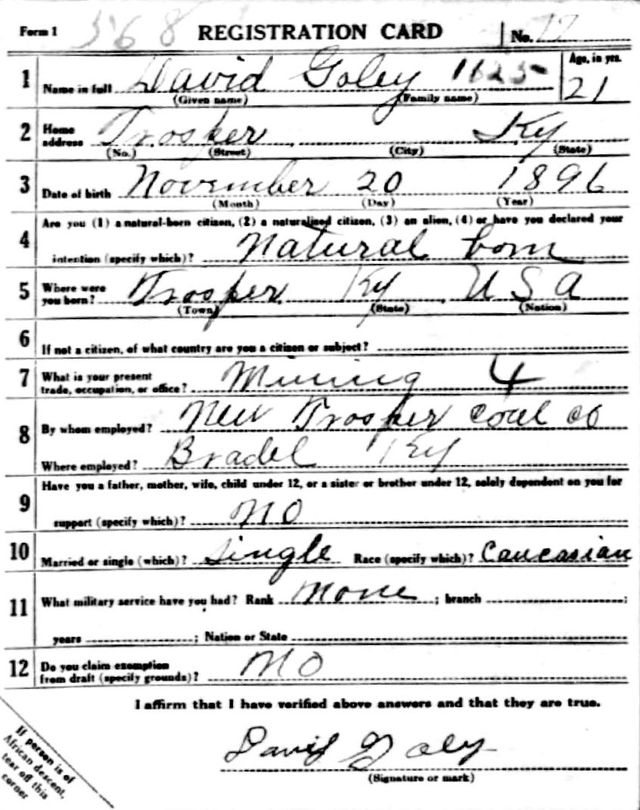 Form 1 568 REGISTRATION CARD No. 12
1 Name in full David Goley 1625 Age, in yrs. 21
(Given name) (Family name)
2 Home address Trosper Ky
(No.) (Street) (City) (State)
3 Date of birth November 20 1896
(Month) (Day) (Year)
4 Are you (1) a natural-born citizen, (2) a naturalized citizen, (3) an alien, (4) or have you declared your
intention (specify which)? Natural born
5 Where were you born? Trosper Ky USA
(Town) (State) (Nation)
6 If not a citizen, of what country are you a citizen or subject?
7 What is your present trade, occupation, or office? Mining 4
8 By whom employed? New Trosper coal co
Where employed? Bradel Ky
9 Have you a father, mother, wife, child under 12, or a sister or brother under 12, solely dependent on you for
support (specify which)? NO
10 Married or single (which)? Single Race (specify which)? Caucasian
11 What military service have you had? Rank None ; branch ;
years ; Nation or State
12 Do you claim exemption from draft (specify grounds)? NO
I affirm that I have verified above answers and that they are true.
David Goley
(Signature or mark)
If person is of
African descent,
tear off this
corner